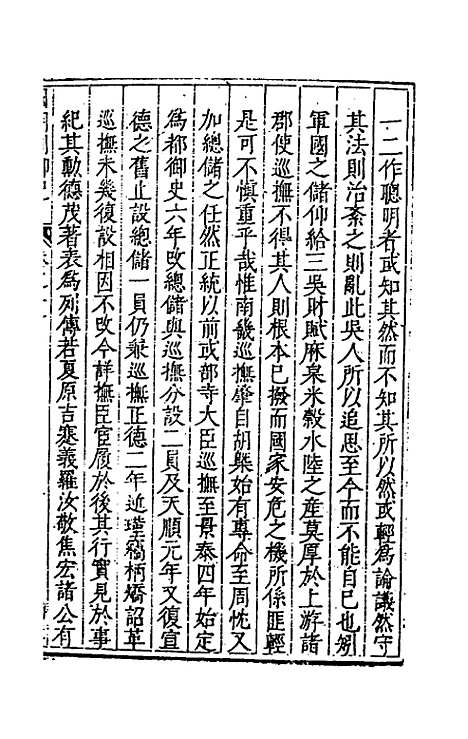 一二作聰明者或知其然而不知其所以然或輕爲論議然守
其法則治紊之則亂此吳人所以追思至今而不能自已也矧
軍國之儲仰給三吳財賦麻枲米穀水陸之産莫厚於上游諸
郡使巡撫不得其人則根本已撥而國家安危之機所係匪輕
是可不慎重乎哉惟南畿巡撫肇自胡槩始有專命至周忱又
加總儲之任然正統以前或部寺大臣巡撫至景泰四年始定
爲都御史六年改總儲與巡撫分設二員及天順元年又復宣
德之舊止設總儲一員仍兼巡撫正德二年近瑾竊柄矯詔革
巡撫未幾復設相因不改今詳撫臣宦履於後其行實見於事
紀其勳德茂著表爲列傳若夏原吉蹇義羅汝敬焦宏諸公有